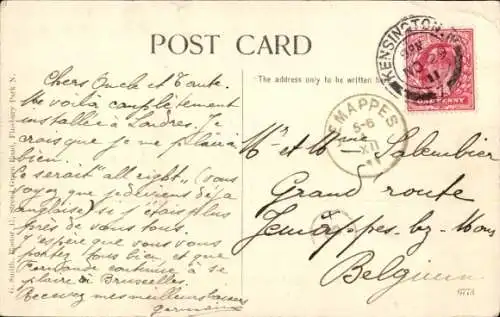 POST CARD
The address only to be written here
Chers Oncle et Tante.
Me voilà complètement
installée à Londres. J
crois que je me plairai
bien.
Ce serait "all right" (vous
voyez que je deviens déjà
anglaise) si j'étais plus
près de vous tous.
J'espère que vous vous
portez tous bien et que
Fernande continue à se
plaire à Bruxelles.
Recevez mes meilleurs baisers
Germaine
KENSINGTON. W
11
ONE PENNY
JEMAPPES
5-6
XII
11
Mr et Mme Salembier
Grand route
Jemappes-lez-Mons
Belgium
G. Smith, 17, Street, Green Road, Finsbury Park N.